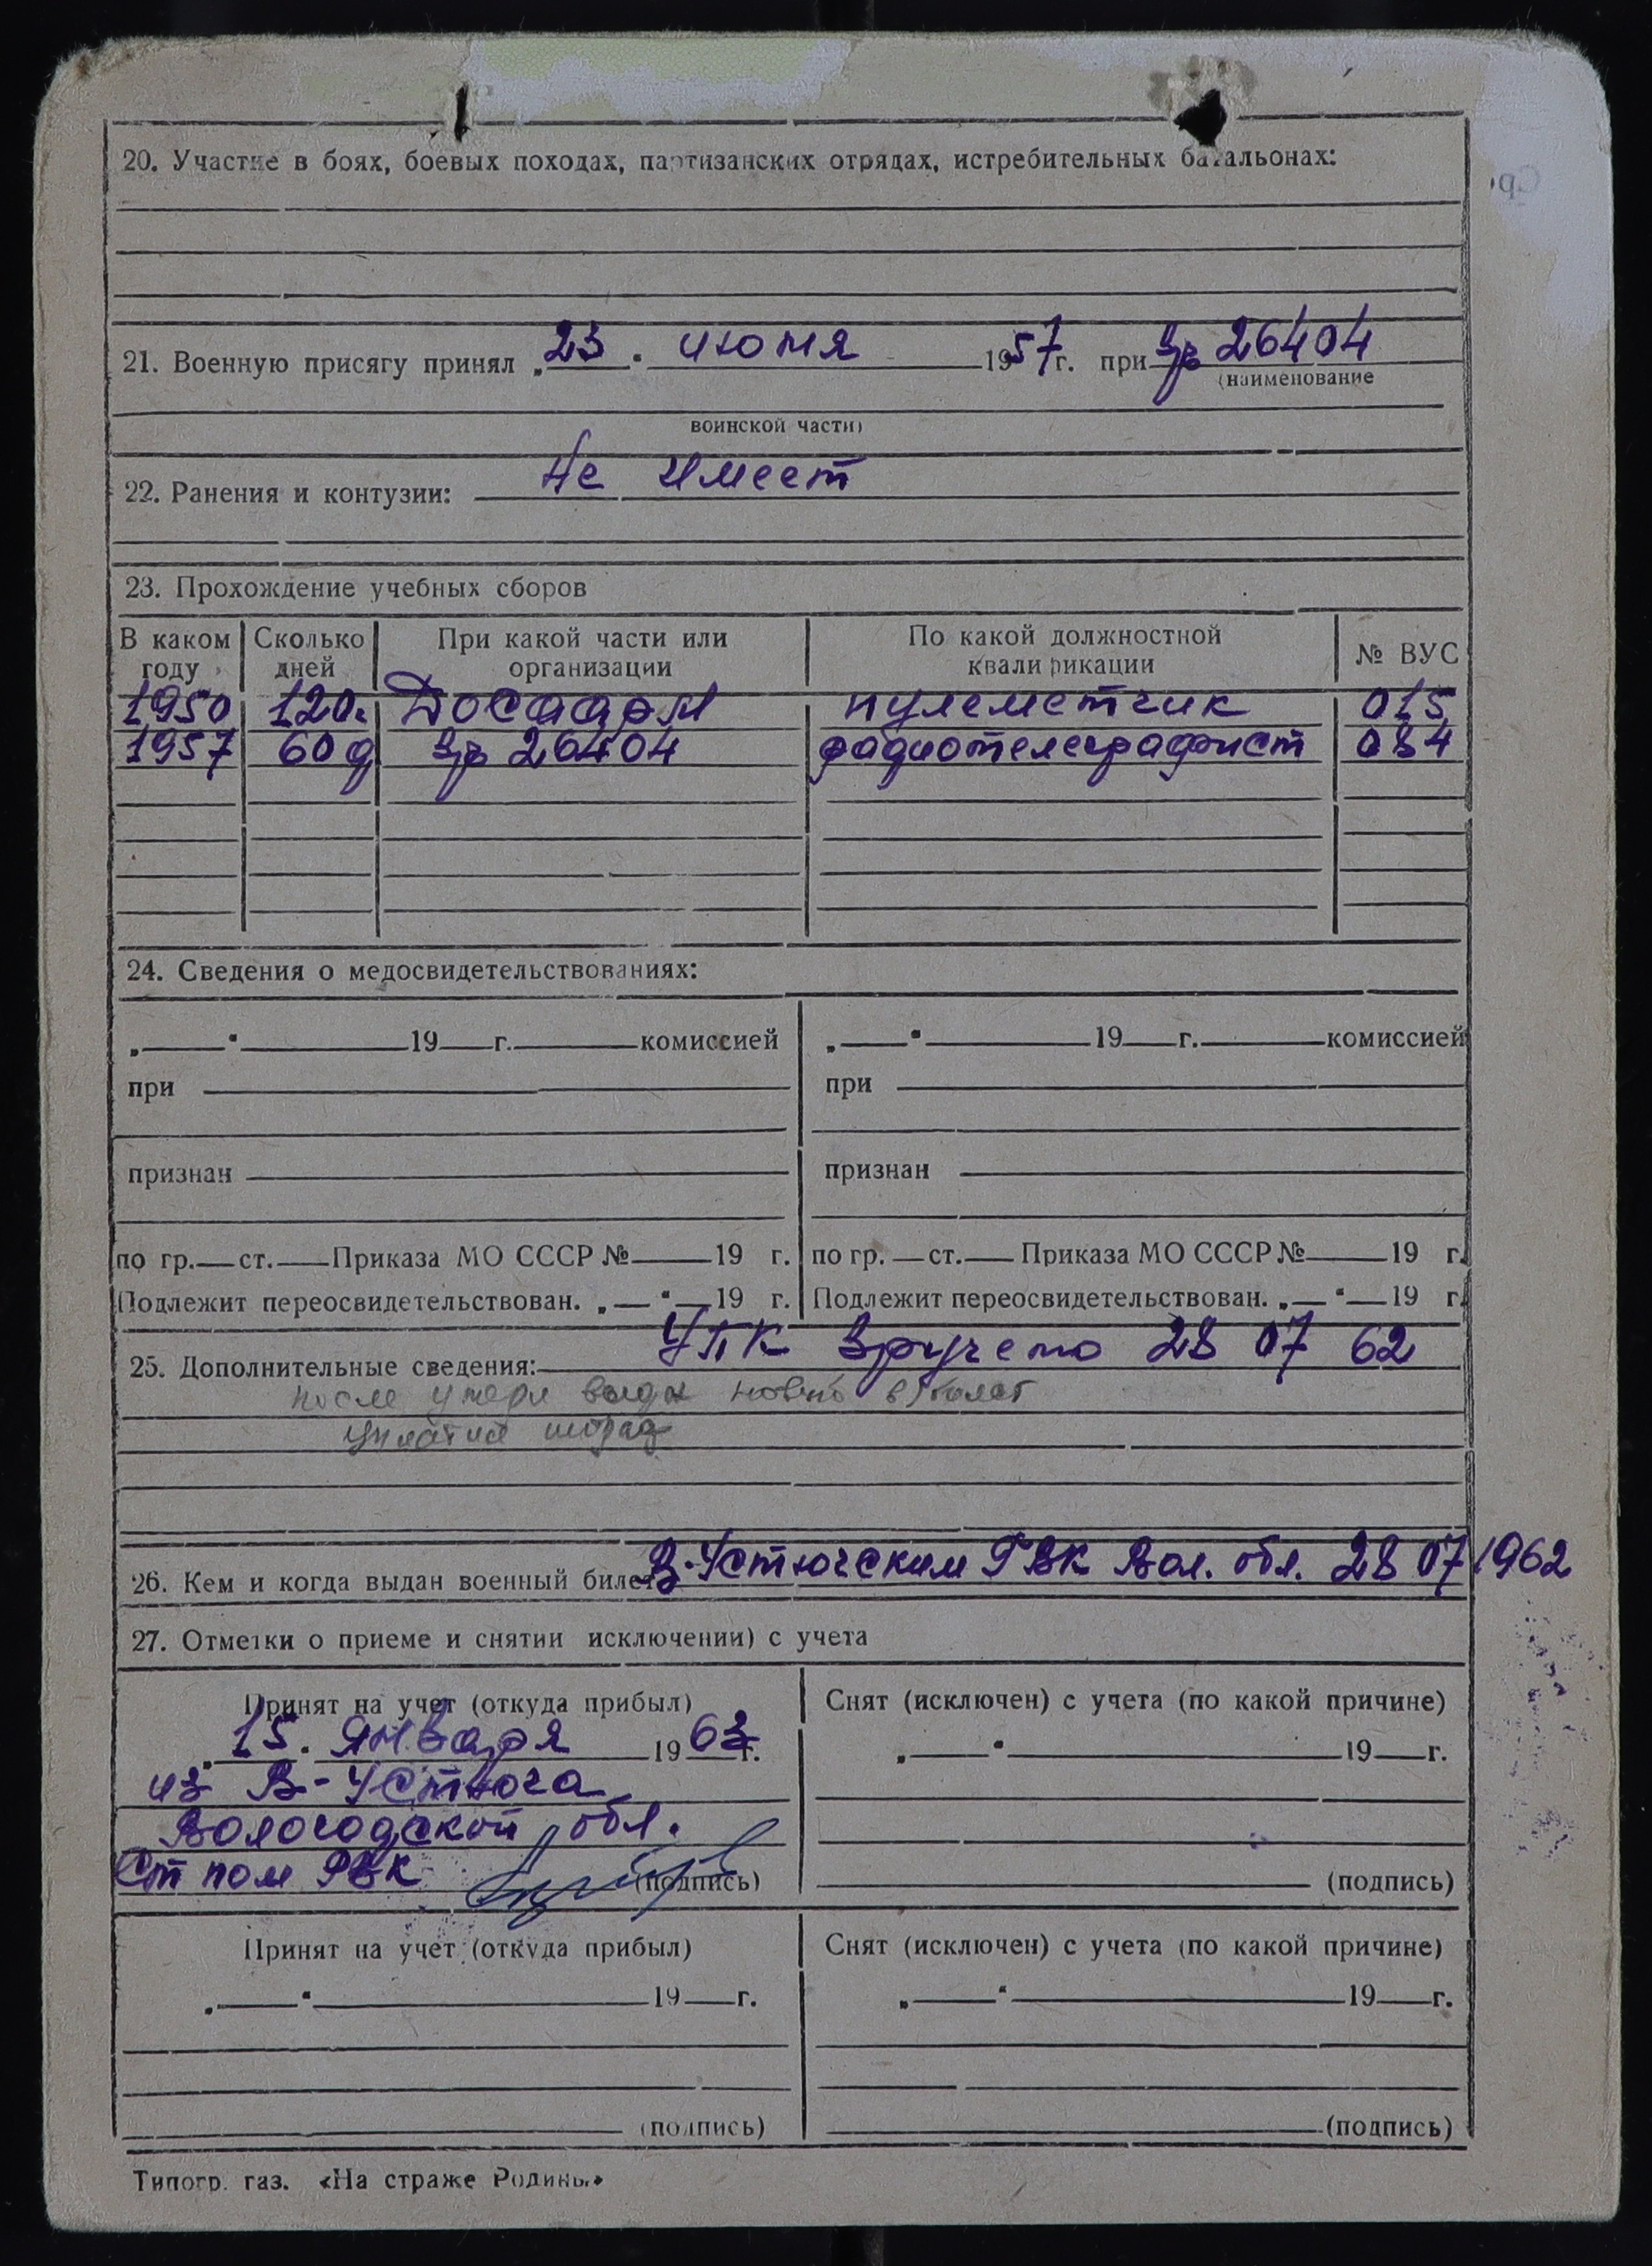 20. Участие в боях, боевых походах, партизанских отрядах, истребительных батальонах:
21. Военную присягу принял „23“ июня 1957г. при в/ч 26404
(наименование
воинской части)
22. Ранения и контузии: Не имеет
23. Прохождение учебных сборов
В каком году Сколько дней При какой части или организации По какой должностной квалификации № ВУС
1950 120. Досаарм пулеметчик 015
1957 60 д в/ч 26404 радиотелеграфист 034
24. Сведения о медосвидетельствованиях:
„ “ 19 г. комиссией „ “ 19 г. комиссией
при при
признан признан
по гр. ст. Приказа МО СССР № 19 г. по гр. ст. Приказа МО СССР № 19 г.
Подлежит переосвидетельствован. „ “ 19 г. Подлежит переосвидетельствован. „ “ 19 г.
25. Дополнительные сведения: УПК вручено 28 07 62
после утери выдан новый в/билет
26. Кем и когда выдан военный билет В-Устюгским РВК Вол. обл. 28 07 1962
27. Отметки о приеме и снятии исключении) с учета
Принят на учет (откуда прибыл) Снят (исключен) с учета (по какой причине)
„15“ января 1963г. „ “ 19 г.
из В-Устюга
Вологодской обл.
Ст пом РВК (подпись) (подпись)
Принят на учет (откуда прибыл) Снят (исключен) с учета (по какой причине)
„ “ 19 г. „ “ 19 г.
(подпись) (подпись)
Типогр. газ. «На страже Родины»